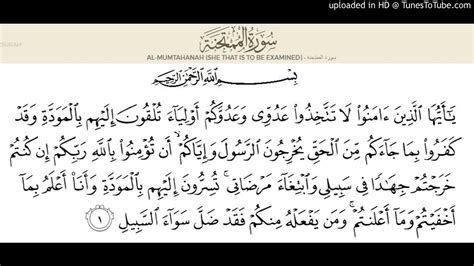 uploaded in HD @ TunesToTube.com
سورة الممتحنة
AL-MUMTAHANAH (SHE THAT IS TO BE EXAMINED) - سورة الممتحنة
بِسْمِ ٱللَّهِ ٱلرَّحْمَٰنِ ٱلرَّحِيمِ
يَٰٓأَيُّهَا ٱلَّذِينَ ءَامَنُوا۟ لَا تَتَّخِذُوا۟ عَدُوِّى وَعَدُوَّكُمْ أَوْلِيَآءَ تُلْقُونَ إِلَيْهِم بِٱلْمَوَدَّةِ وَقَدْ
كَفَرُوا۟ بِمَا جَآءَكُم مِّنَ ٱلْحَقِّ يُخْرِجُونَ ٱلرَّسُولَ وَإِيَّاكُمْ ۙ أَن تُؤْمِنُوا۟ بِٱللَّهِ رَبِّكُمْ إِن كُنتُمْ
خَرَجْتُمْ جِهَٰدًا فِى سَبِيلِى وَٱبْتِغَآءَ مَرْضَاتِى ۚ تُسِرُّونَ إِلَيْهِم بِٱلْمَوَدَّةِ وَأَنَا۠ أَعْلَمُ بِمَآ
أَخْفَيْتُمْ وَمَآ أَعْلَنتُمْ ۚ وَمَن يَفْعَلْهُ مِنكُمْ فَقَدْ ضَلَّ سَوَآءَ ٱلسَّبِيلِ ١